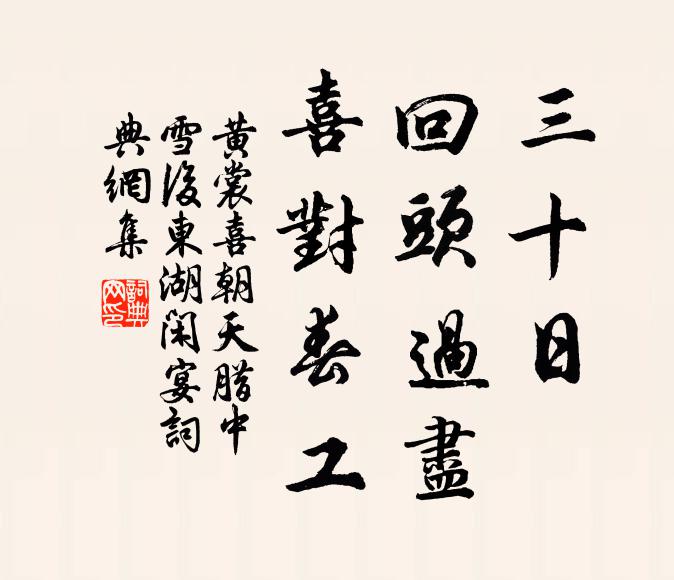 三十日
回頭過盡
喜對春工
黃裳喜朝天腊中
雪後東湖閑宴詞
典網集
詞典網印